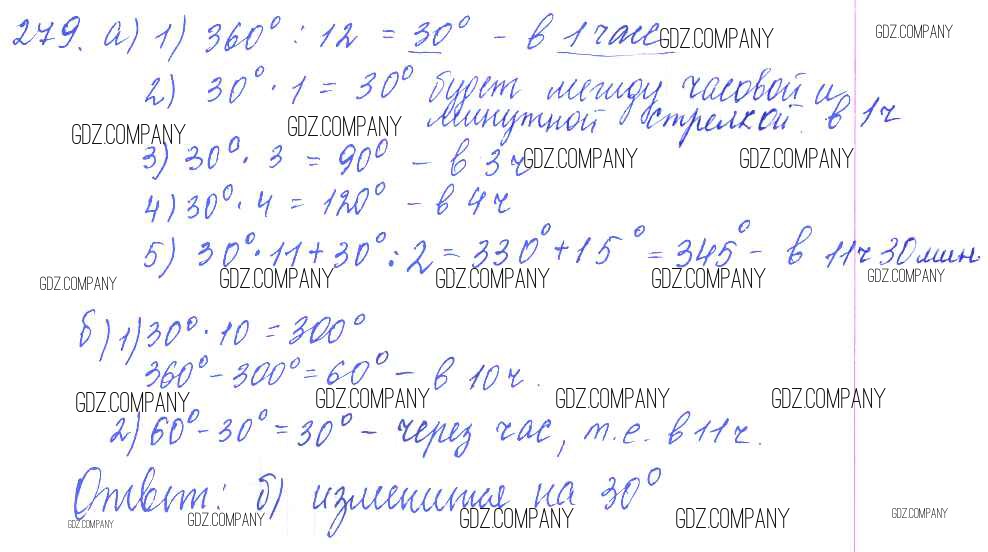 279. а) 1) 360° : 12 = 30° - в 1 часе GDZ.COMPANY GDZ.COMPANY
2) 30° · 1 = 30° будет между часовой и
GDZ.COMPANY GDZ.COMPANY минутной стрелкой в 1ч
3) 30° · 3 = 90° - в 3 ч GDZ.COMPANY GDZ.COMPANY
4) 30° · 4 = 120° - в 4ч
5) 30° · 11 + 30° : 2 = 330° + 15° = 345° - в 11ч 30 мин
GDZ.COMPANY GDZ.COMPANY GDZ.COMPANY GDZ.COMPANY GDZ.COMPANY
б) 1) 30° · 10 = 300°
360° - 300° = 60° - в 10 ч.
GDZ.COMPANY GDZ.COMPANY GDZ.COMPANY GDZ.COMPANY
2) 60° - 30° = 30° - через час, т.е. в 11 ч.
Ответ: б) изменится на 30°
GDZ.COMPANY GDZ.COMPANY GDZ.COMPANY GDZ.COMPANY GDZ.COMPANY